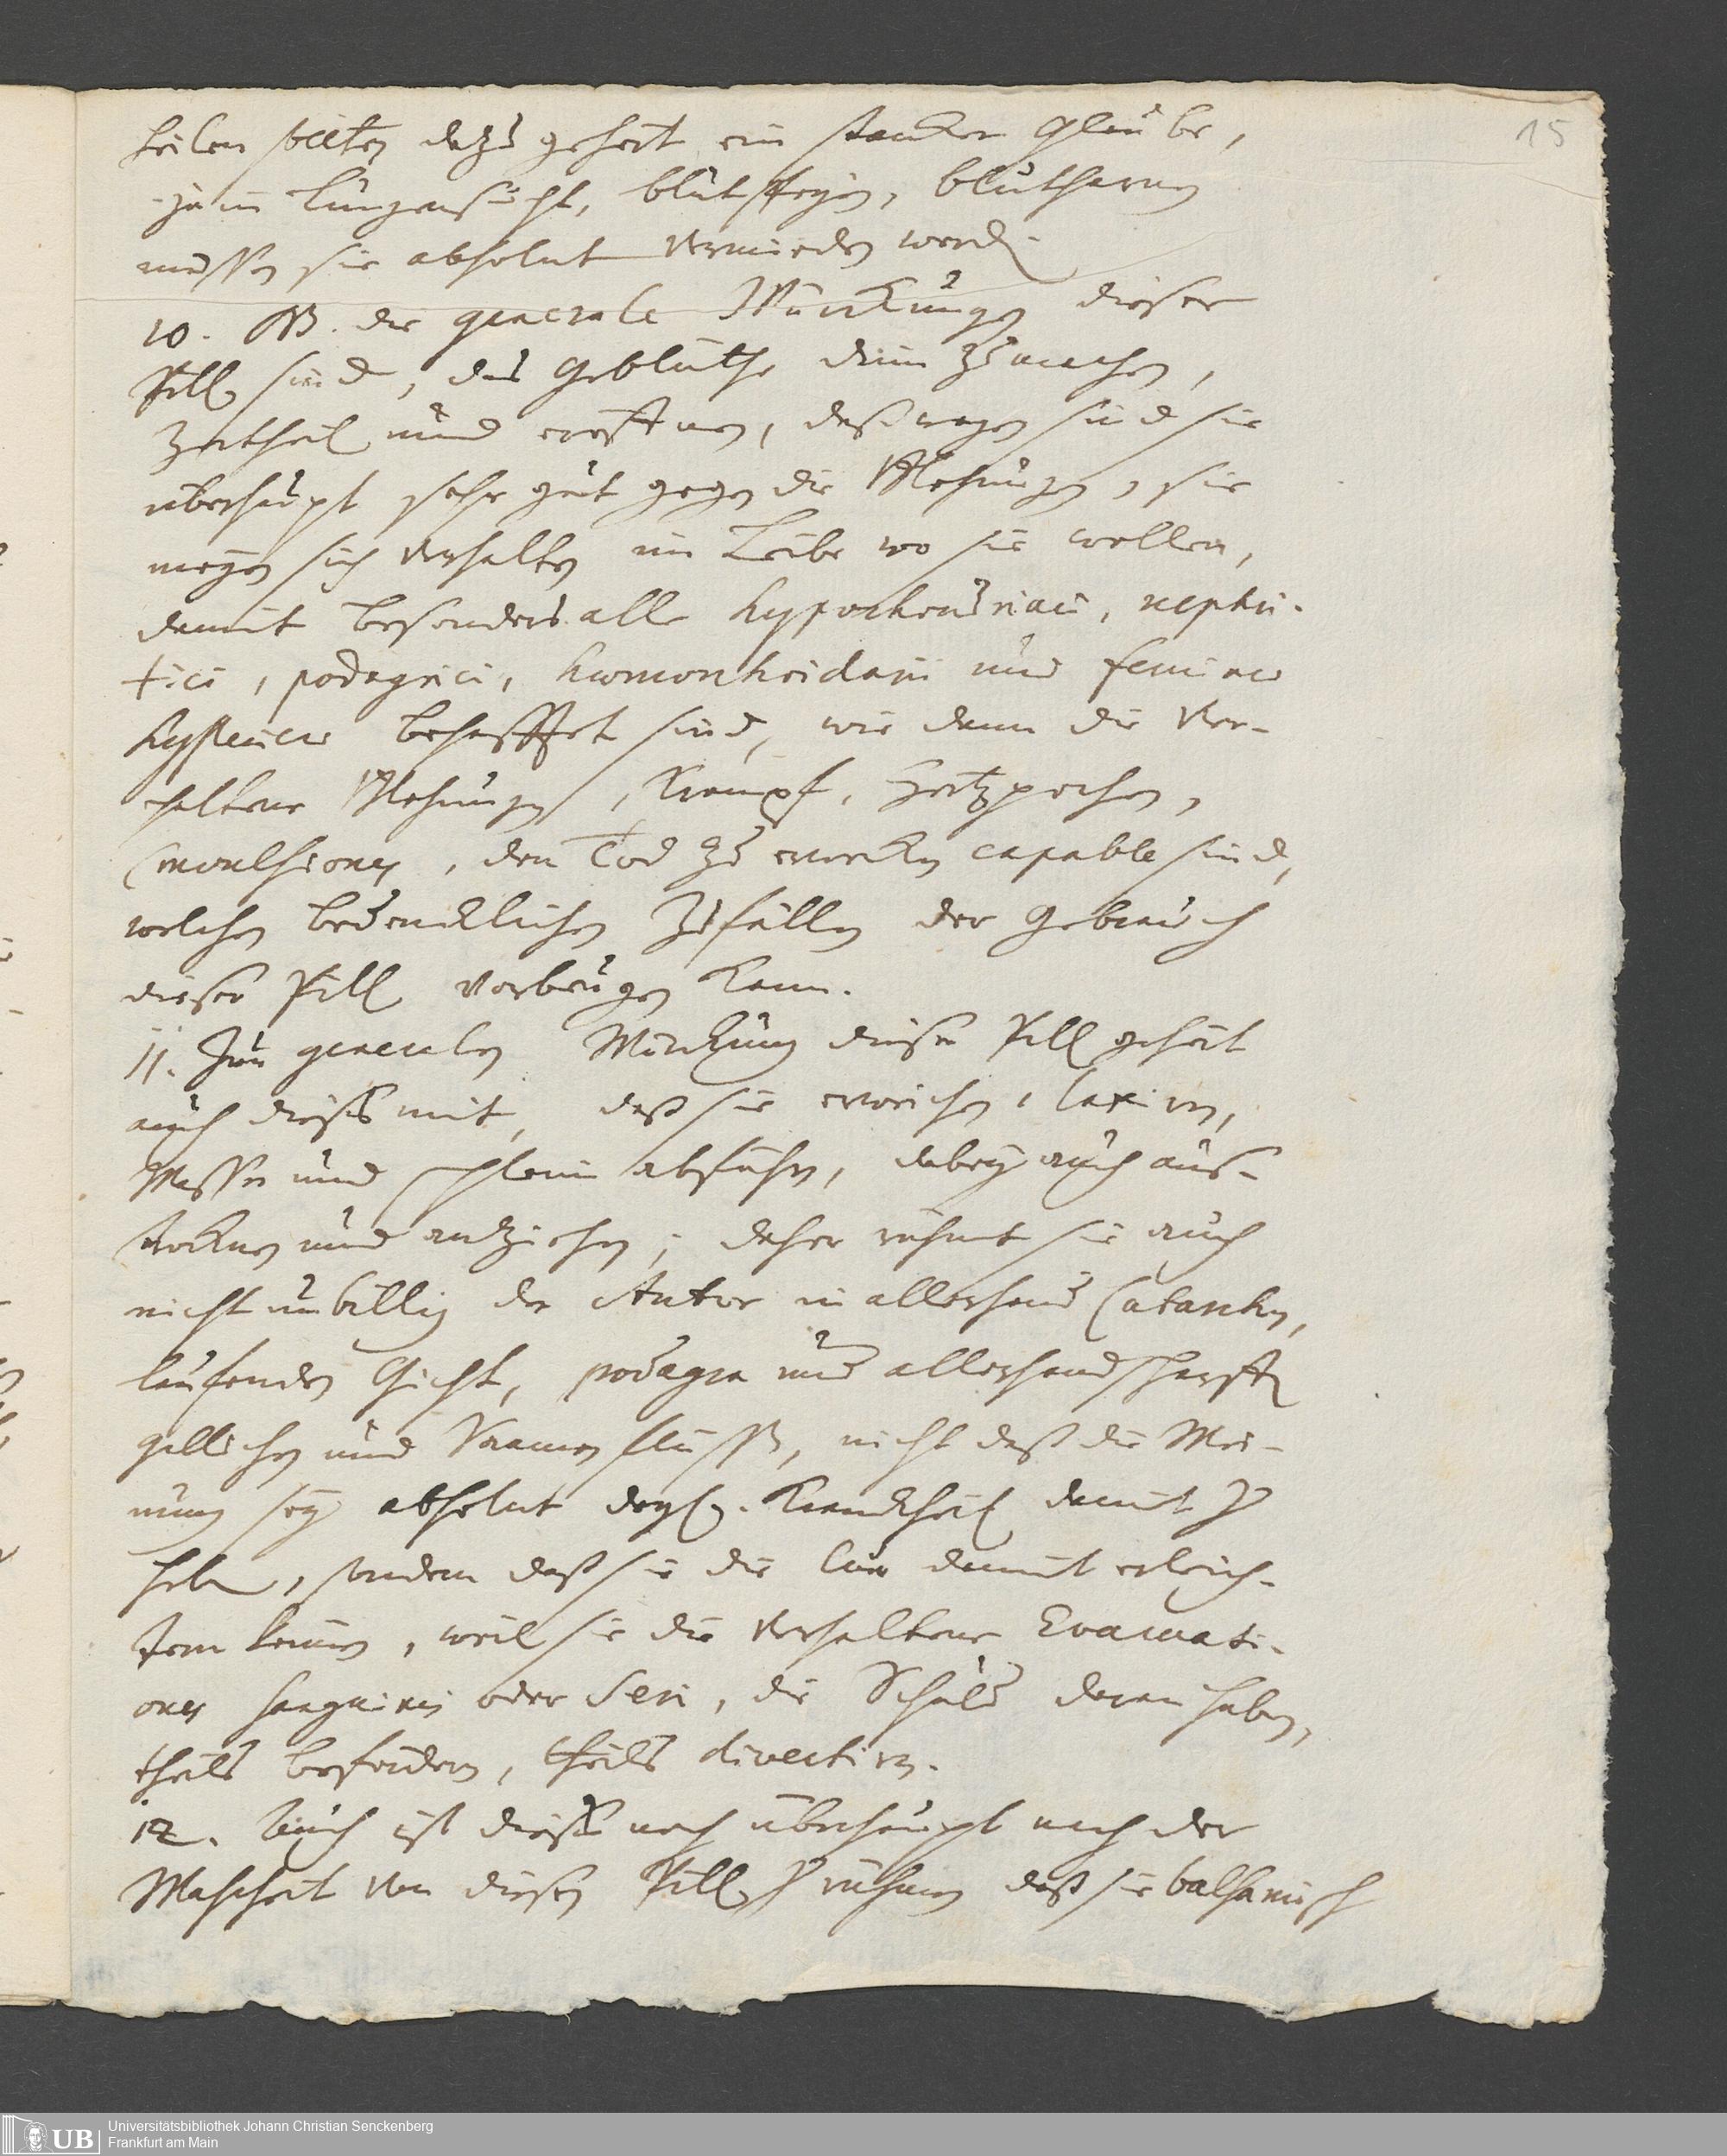 15
heilen solten dazu gehört ein starcker Glaube,
ja in Lungensucht, blutspeyen, blutharnen
müssen sie absolut vermieden werden.
10. NB. die generale Würckungen dieser
Pillen sind, das Geblüthe dünn zu machen,
zertheilen und eröffnen, deßwegen sind sie
überhaupt sehr gut gegen die Blehungen, sie
mögen sich verhalten im Leibe wo sie wollen,
damit besonders alle hypochondriaci, nephri-
tici, podagrici, haemorrhoidarii und feminae
hystericae behafftet sind, wie dann die ver-
haltene Blehungen, Krampf, Hertzpochen,
Convulsiones, den Tod zu erwecken capable sind,
welchen bedencklichen Zufällen der Gebrauch
dieser Pillen vorbeugen kann.
11. Zur generalen Würckung dieser Pillen gehört
auch dieses mit, daß sie erweichen, laxiren,
Wasser und Schleim abführen, dabey auch aus-
trocknen und anziehen; daher rühmt sie auch
nicht unbillig der Autor in allerhand Catarrhen,
lauffenden Gicht, podagra und allerhand scharffen
gallichen und Flüsse, nicht daß die Mei-
nung sey absolut dergl. Kranckheiten damit zu
heben, sondern daß sie die Cur damit erleich-
tern können, weil sie die verhaltene Evacuati-
ones sanguinis oder Seri, die Schuld daran haben,
theils befördern, theils divertiren.
12. Auch ist dieses noch überhaupt nach der
Wahrheit von diesen Pillen zu rühmen daß sie balsamisch
Universitätsbibliothek Johann Christian Senckenberg
UB Frankfurt am Main